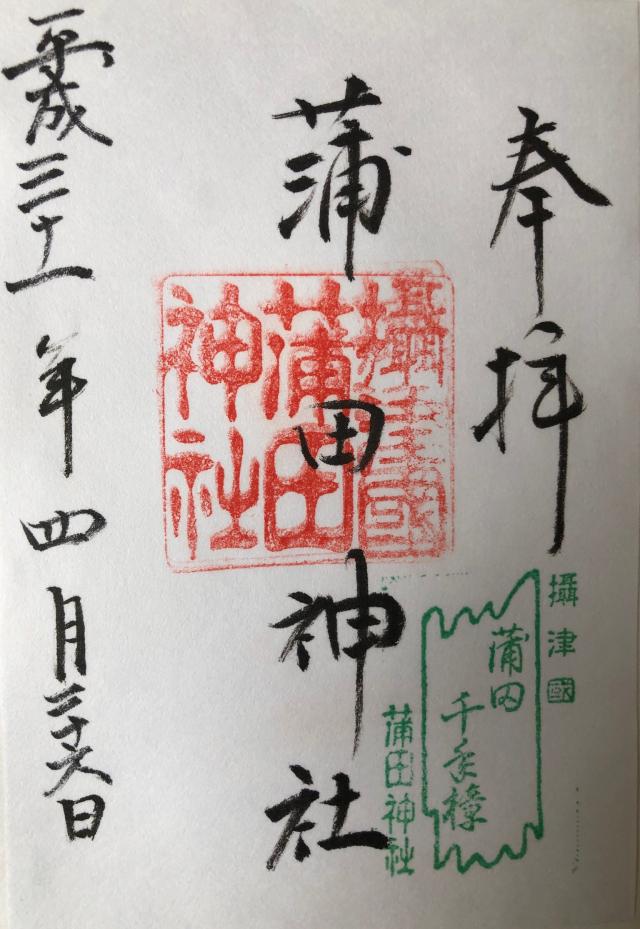 奉拝
攝津國
蒲田神社
蒲田神社
攝津國
蒲田
千年樟
蒲田神社
平成三十一年四月二十六日